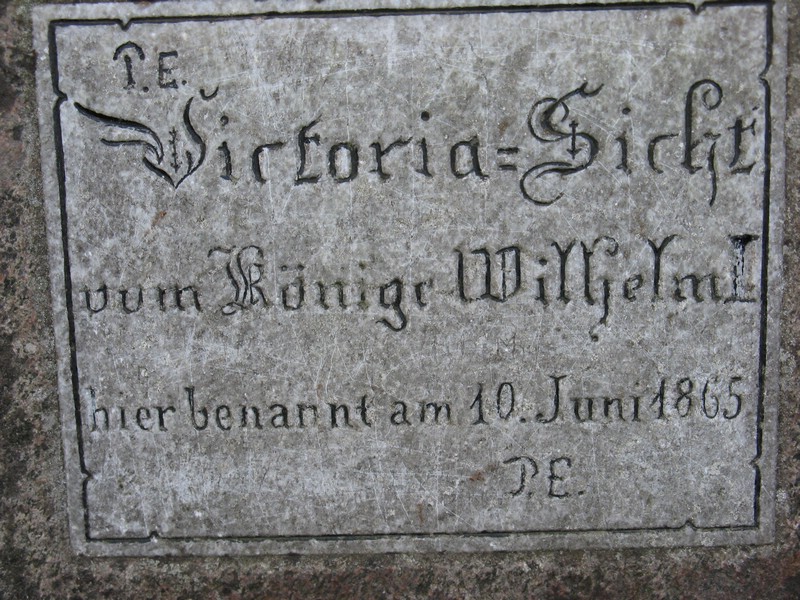 P.E.
Victoria=Sicht
vom Könige Wilhelm I
hier benannt am 10. Juni 1865
P.E.